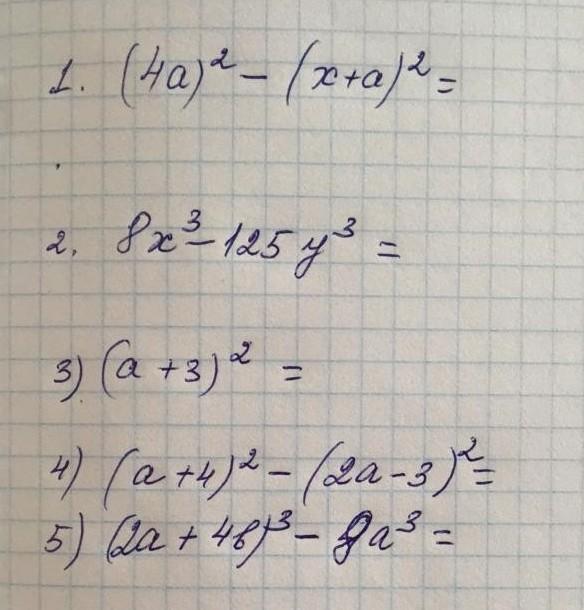 1. (4a)² - (x+a)² =
2. 8x³ - 125y³ =
3) (a+3)² =
4) (a+4)² - (2a-3)² =
5) (2a+4b)³ - a³ =